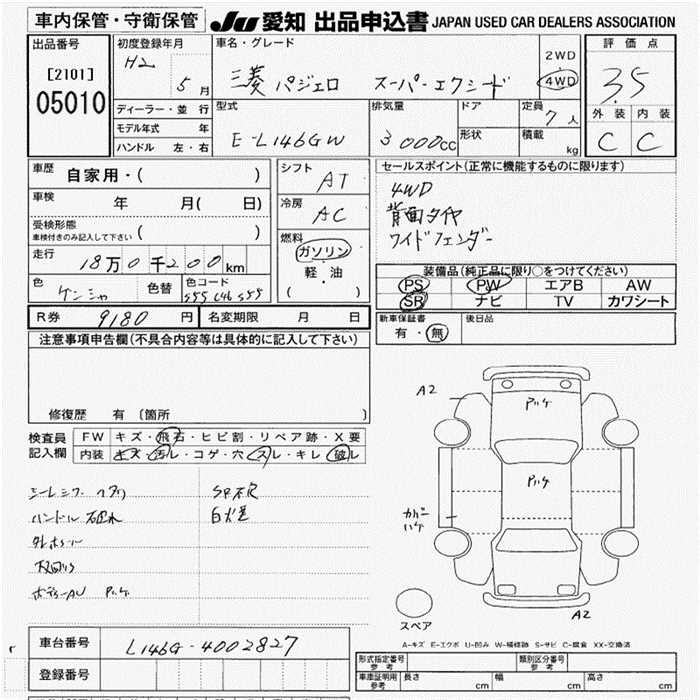 車内保管・守衛保管 JU 愛知 出品申込書 JAPAN USED CAR DEALERS ASSOCIATION
出品番号
[2101]
05010
初度登録年月
H2 5月
ディーラー・並行
モデル年式 年
ハンドル 左・右
車名・グレード
三菱 パジェロ スーパーエクシード
2WD
4WD
型式
E-L146GW
排気量
3000cc
ドア
形状
定員
7人
積載
kg
評価点
3.5
外装 内装
C C
車歴 自家用・( )
車検 年 月( 日)
受検形態
車検付きのみ記入して下さい ( )
走行 18万0千200km
色 ケンシャ 色替 色コード
シフト AT
冷房 AC
燃料
ガソリン
軽・油
( )
セールスポイント(正常に機能するものに限ります)
4WD
背面タイヤ
ワイドフェンダー
装備品(純正品に限り○をつけてください)
PS PW エアB AW
SR ナビ TV カワシート
新車保証書
有・無
後日品
R券 9180円 名変期限 月 日
注意事項申告欄(不具合内容等は具体的に記入して下さい)
修復歴 有 〔箇所 〕
検査員
記入欄
FW キズ・飛石・ヒビ割・リペア跡・X要
内装 キズ・汚レ・コゲ・穴・スレ・キレ・破レ
ハンドル
A2
ハケ
ハケ
カバーハケ
A2
スペア
A-キズ E-エクボ U-凹み W-補修跡 S-サビ C-腐食 XX-交換済
車台番号 L146G-4002827
登録番号
形式指定番号
参考
類別区分番号
参考
車庫証明用
参考
長さ cm 幅 cm 高さ cm